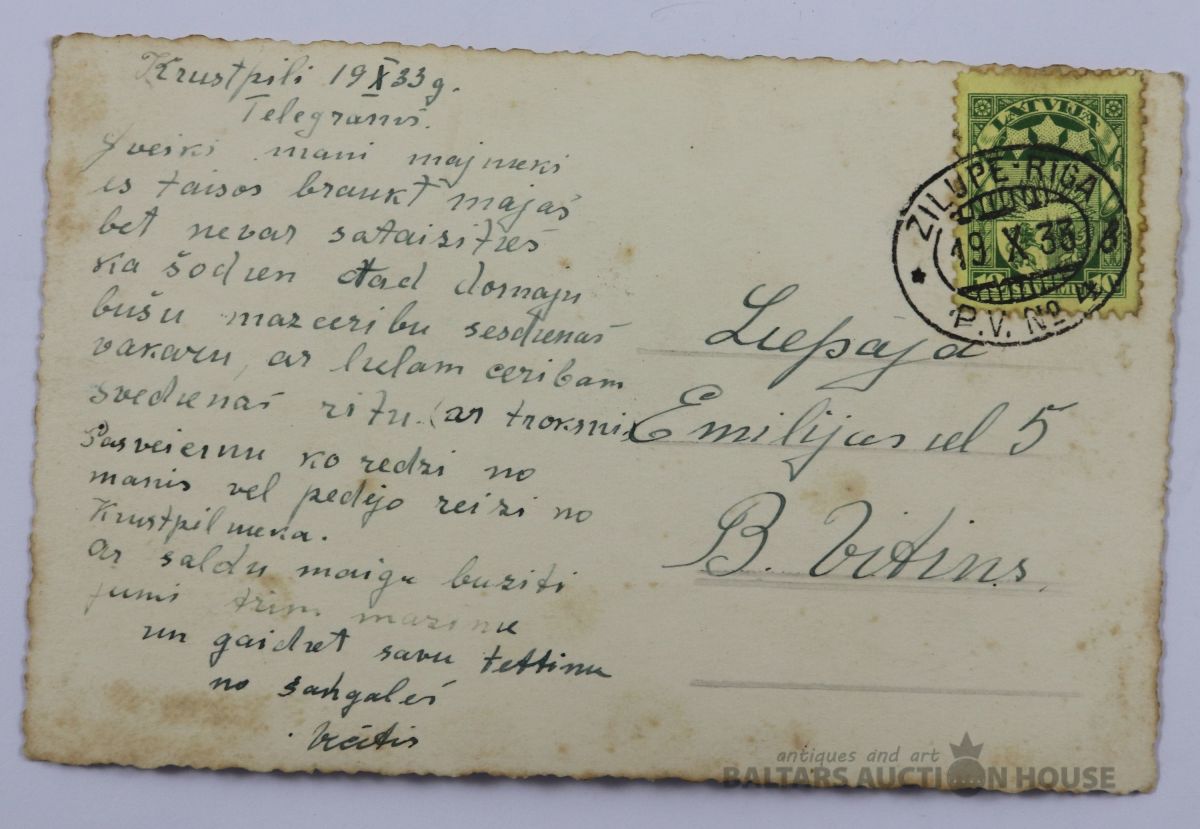 Krustpili 19 X 33 g.
Telegrams.
Sveiki mani majneki
es taisos braukt majas
bet nevar sataisities
ka šodien tad domaju
bušu mazceribu sesdienas
vakaru, ar lielam ceribam
svedienas ritu. (ar troksni)
Pasveicinu ko redzi no
manis vel pedejo reizi no
Krustpilnieka.
ar saldu maigu buziti
jums trim mazinie
un gaidiet savu tettinu
no
LATVIJA
ZILUPE-RIGA
19 X 33
P.V. No 4
Liepaja
Emilijas iel 5
B. Vitins.
antiques and art
BALTARS AUCTION HOUSE